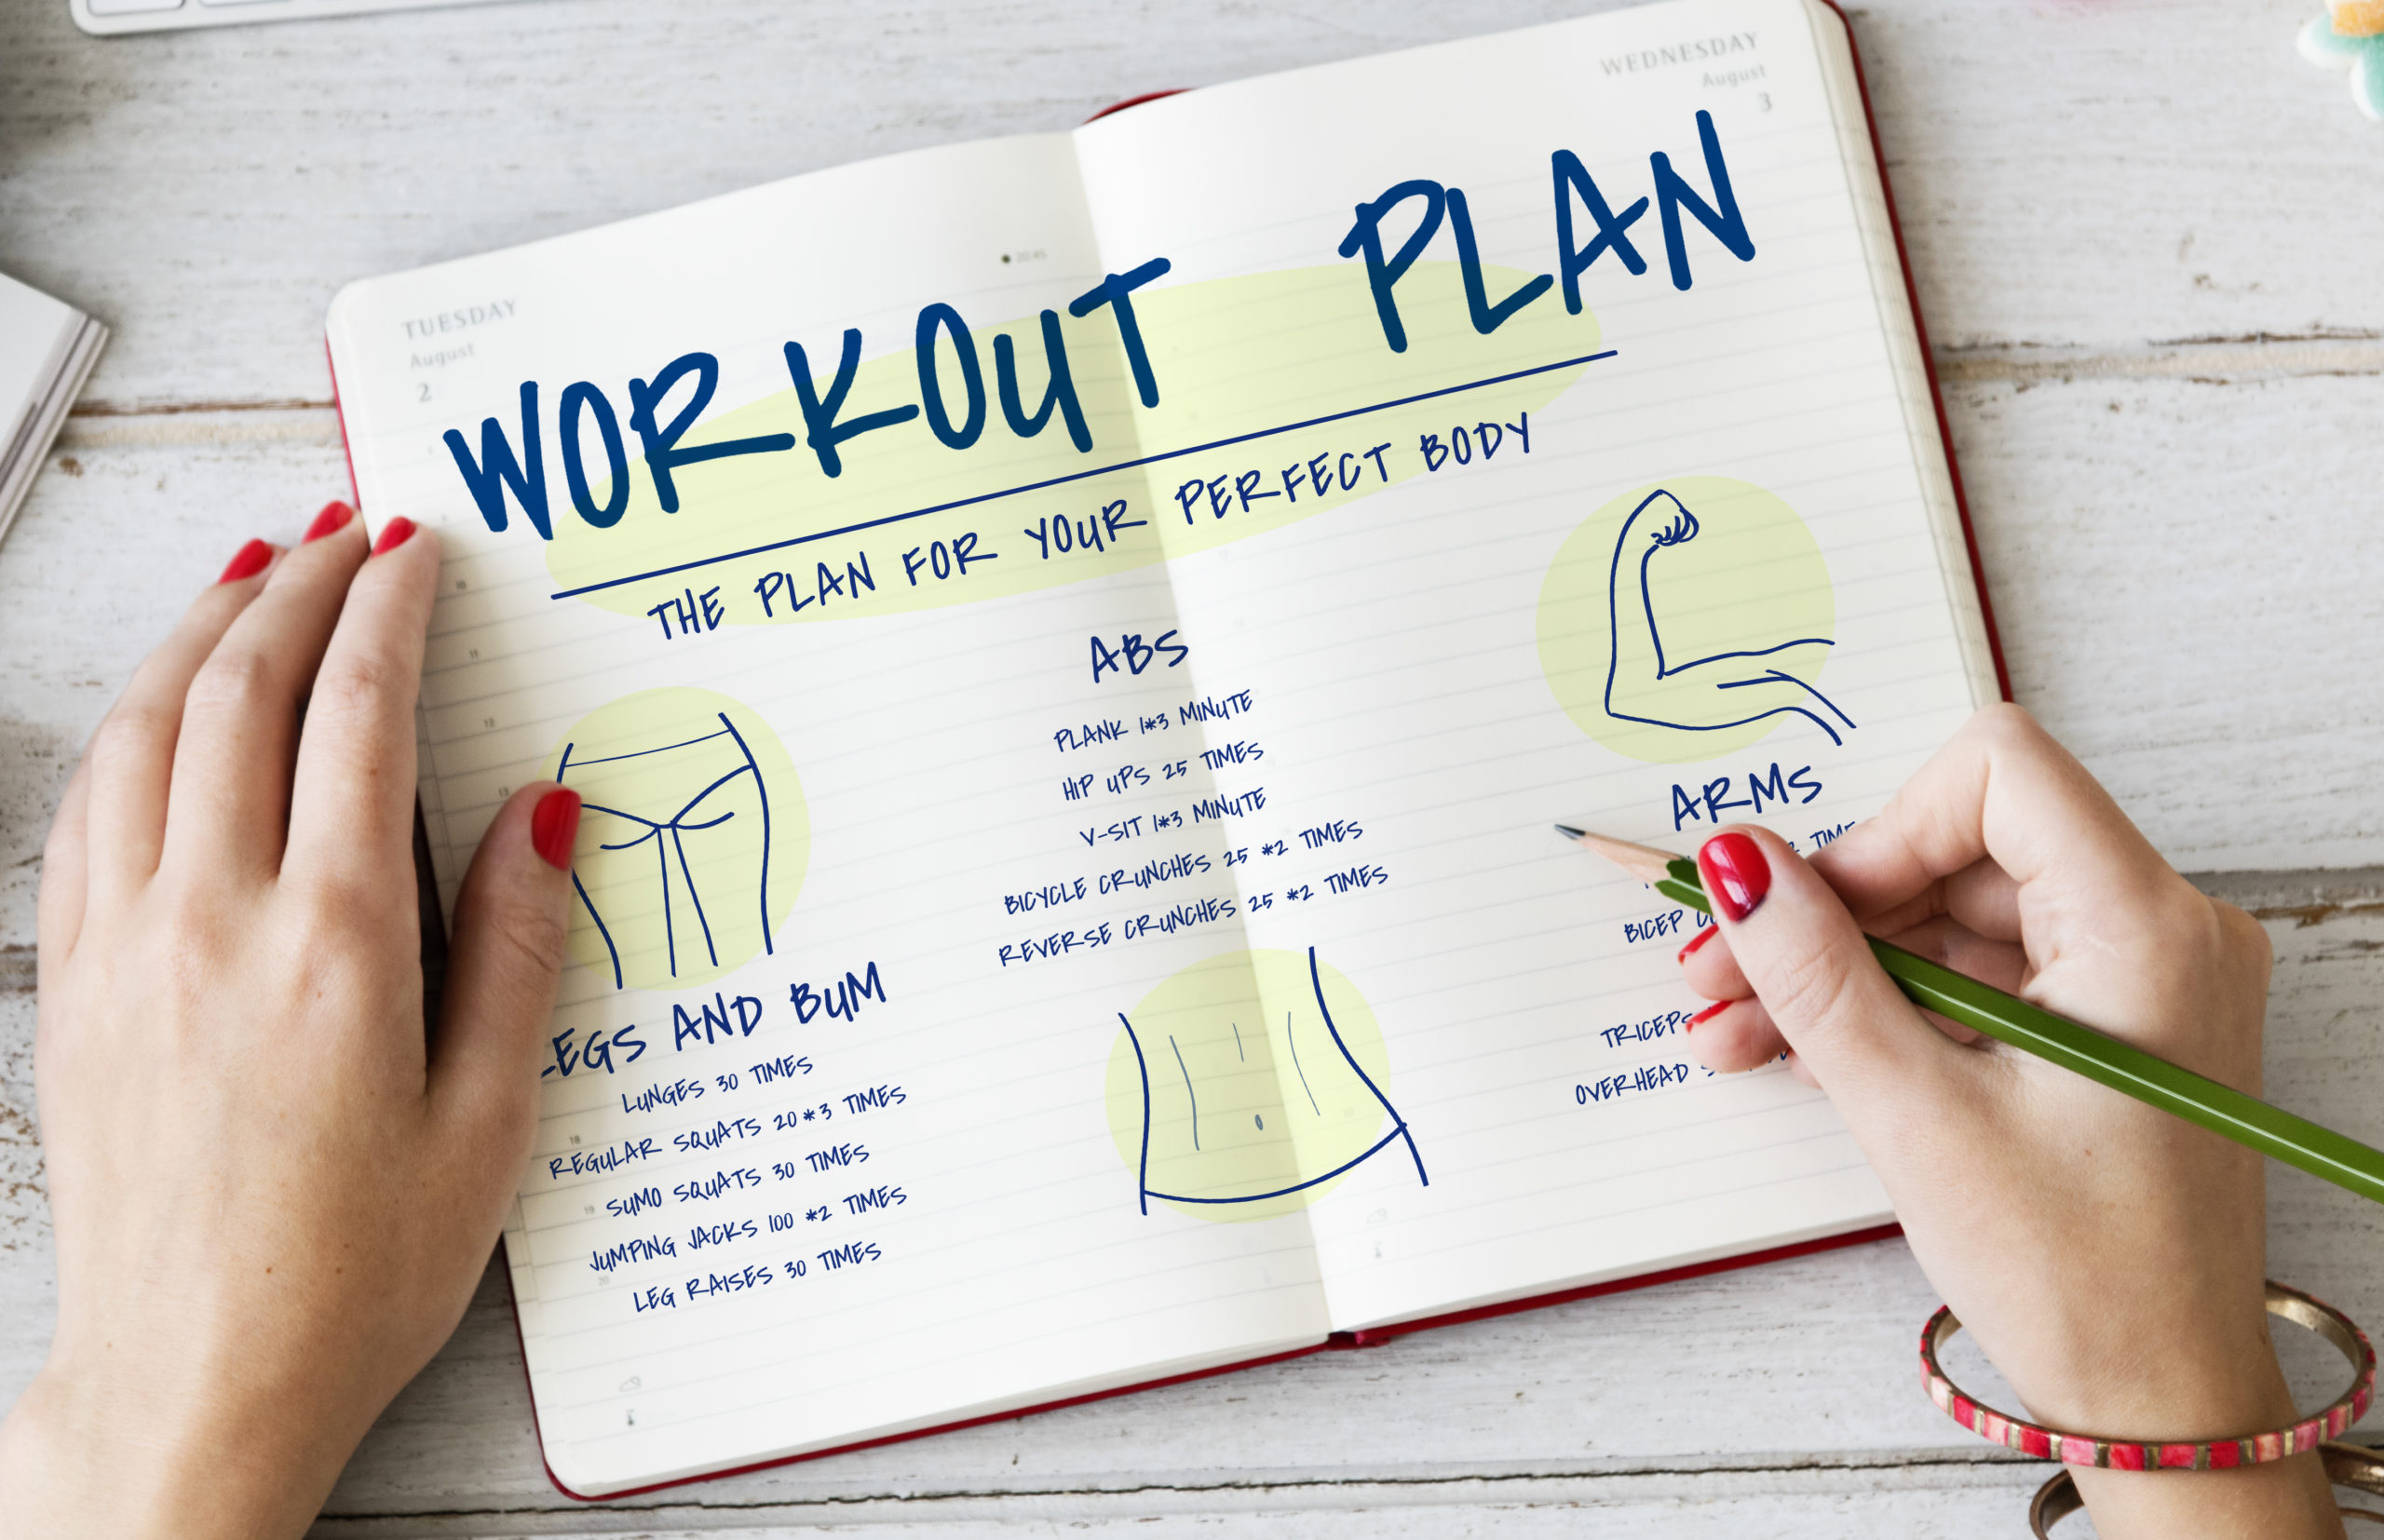 TUESDAY
August
2
WEDNESDAY
August
3
20:45
WORKOUT PLAN
THE PLAN FOR YOUR PERFECT BODY
LEGS AND BUM
LUNGES 30 TIMES
REGULAR SQUATS 20*3 TIMES
SUMO SQUATS 30 TIMES
JUMPING JACKS 100 *2 TIMES
LEG RAISES 30 TIMES
ABS
PLANK 1*3 MINUTE
HIP UPS 25 TIMES
V-SIT 1*3 MINUTE
BICYCLE CRUNCHES 25 *2 TIMES
REVERSE CRUNCHES 25 *2 TIMES
ARMS
BICEP
TRICEPS
OVERHEAD
10
11
12
13
18
19
20